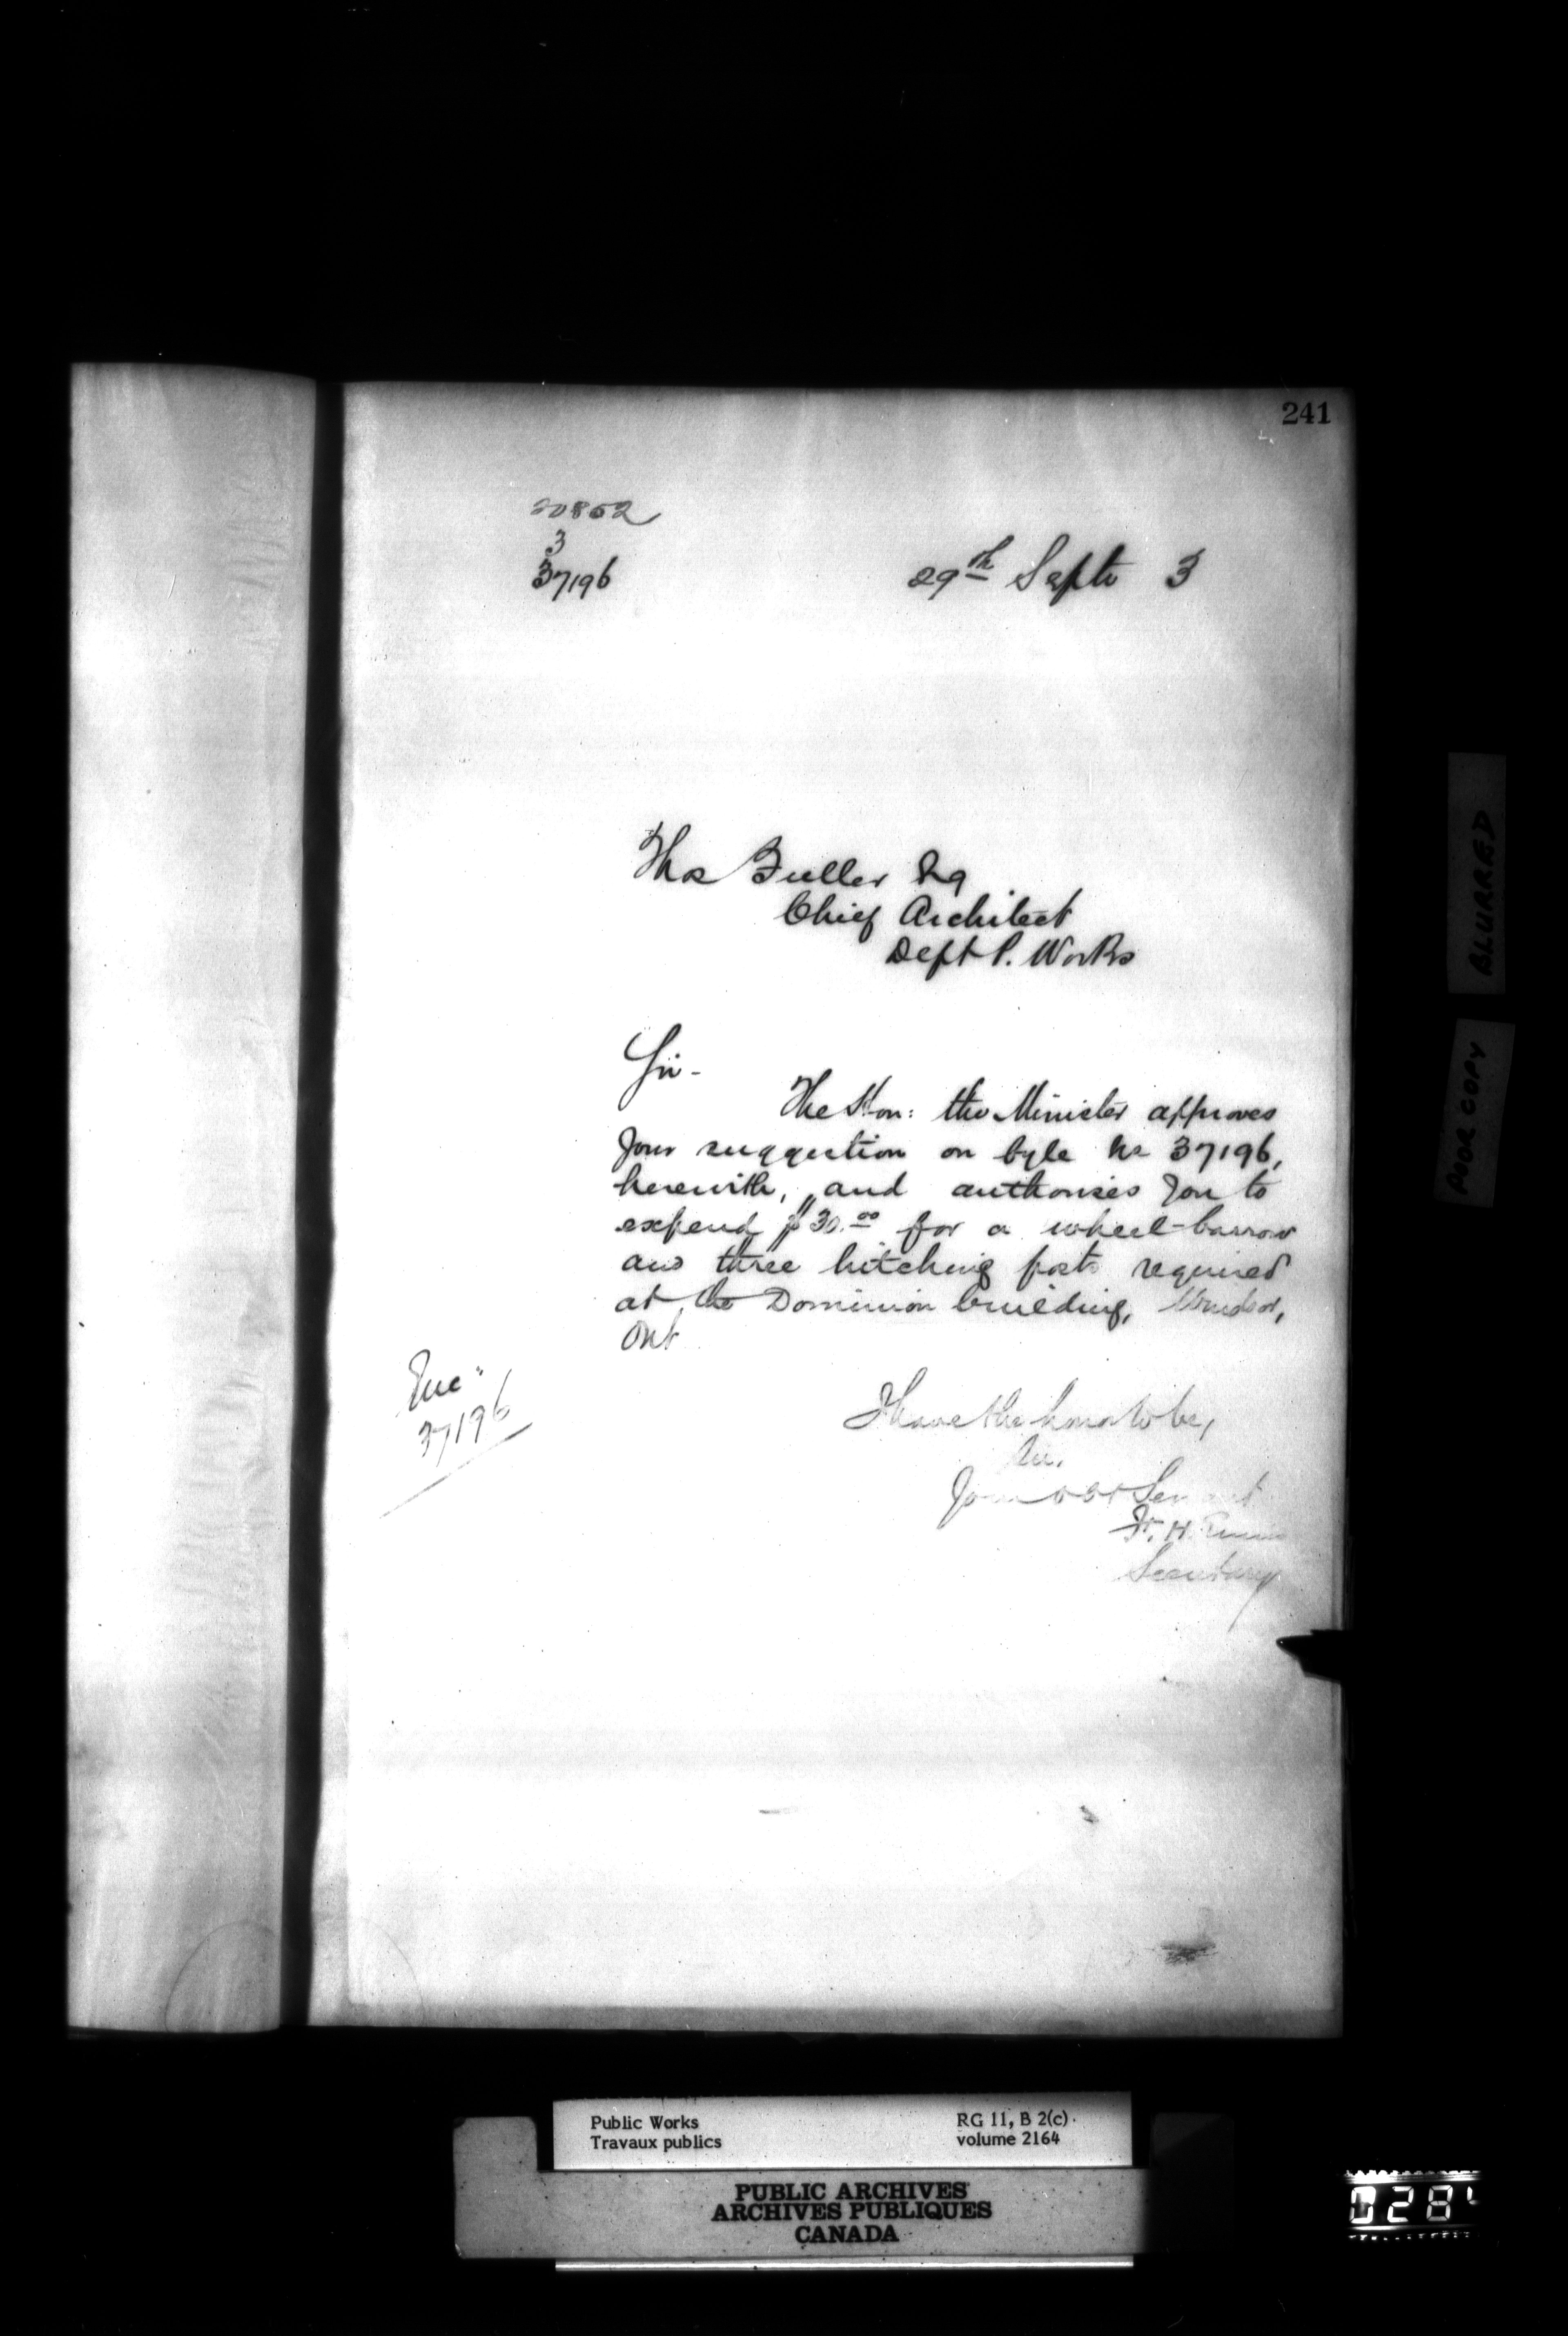 241
20852
3
37196
29th Septr 3
Thos Fuller Esq
Chief Architect
Dept P. Works
Sir-
The Hon: the Minister approves
your suggestion on fyle No 37196,
herewith, and authorises you to
expend $30.00 for a wheel-barrow
and three hitching posts required
at the Dominion building, Windsor,
Ont
Enc:
37196
I have the honor to be,
Sir,
Your obt Servant
F. H. Ennis
Secretary
BLURRED
POOR COPY
Public Works
Travaux publics
RG 11, B 2(c).
volume 2164
PUBLIC ARCHIVES
ARCHIVES PUBLIQUES
CANADA
028